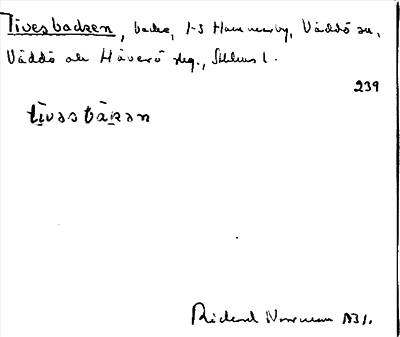 Tivesbacken, backe, 1-3 Hammarby, Väddö sn,
Väddö och Häverö skg., Sthlms l.
239
tìvəsbàkən
Rickard Norrman 1931.